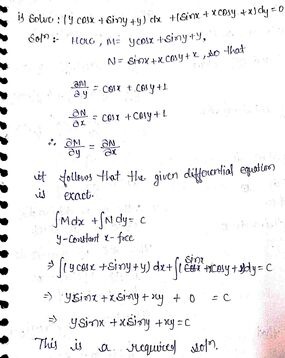 is Solve : (y cosx + Siny + y) dx + (Sinx + x cosy + x) dy = 0
Soln :- Here, M = y cosx + Siny + y,
N = Sinx + x cosy + x, so that
∂M/∂y = cosx + cosy + 1
∂N/∂x = cosx + cosy + 1
∴ ∂M/∂y = ∂N/∂x
it follows that the given differential equation
is exact.
∫Mdx + ∫Ndy = C
y-Constant x-free
⇒ ∫(y cosx + Siny + y) dx + ∫( sinx + x cosy + x)dy = C
⇒ ySinx + xSiny + xy + 0 = C
⇒ ySinx + xSiny + xy = C
This is a required soln.